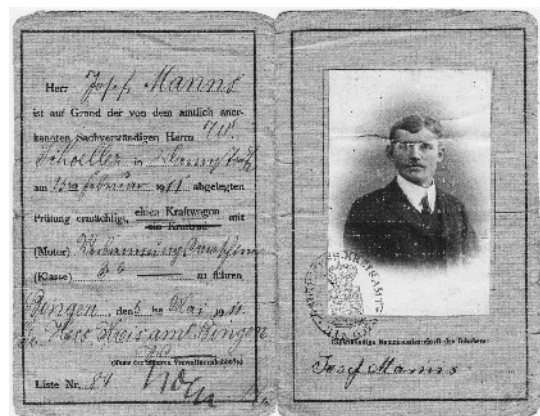 Herr Josef Manns
ist auf Grund der von dem amtlich aner-
kannten Sachverständigen Herrn W.
Schoeller in Darmstadt
am 15ten Februar 1911 abgelegten
Prüfung ermächtigt, einen Kraftwagen mit
ein Kraftrad
(Motor) Verbrennungsmaschine
(Klasse) zu führen
Bingen, den 5ten Mai 1911.
Gr. Hess. Kreisamt Bingen
(Name der höheren Verwaltungsbehörde)
Liste Nr. 84
KREISAMT
BINGEN
Eigenhändige Namensunterschrift des Inhabers:
Josef Manns